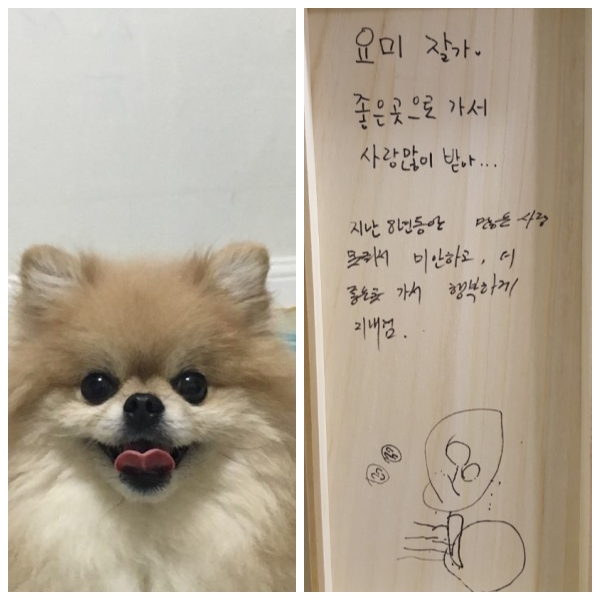 요미 잘가.
좋은곳으로 가서
사랑많이 받아...
지난 8년동안 사랑
미안하고, 더
좋은곳 가서 행복하게
지내렴.